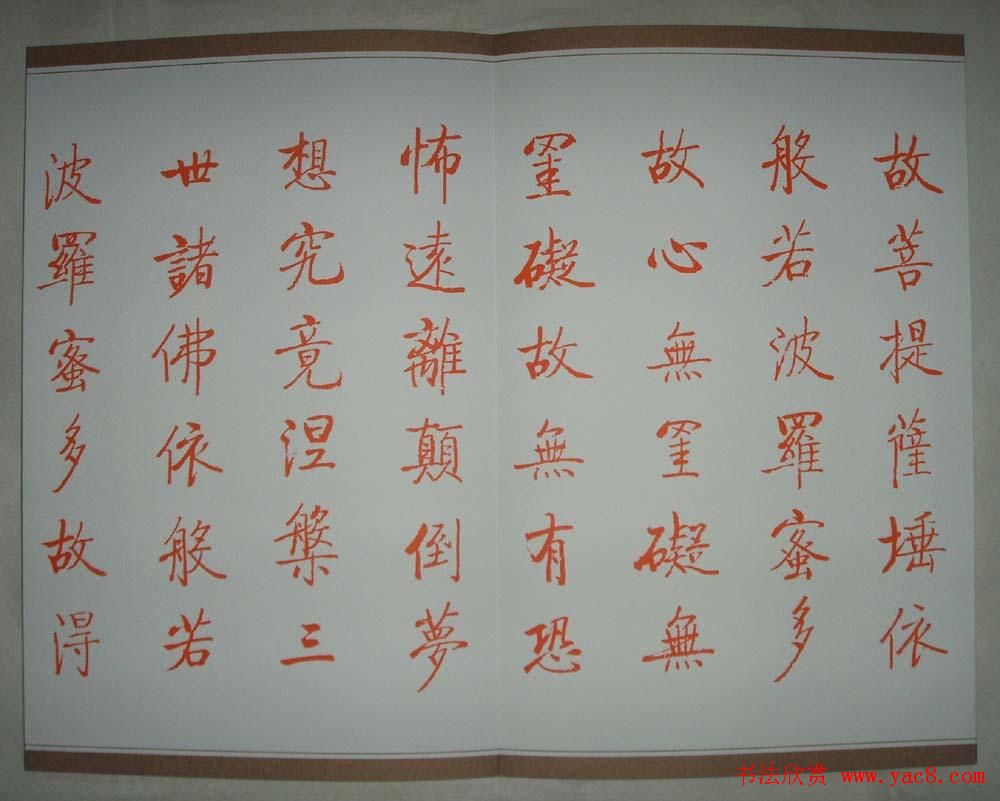 故菩提薩埵依
般若波羅蜜多
故心無罣礙無
罣礙故無有恐
怖遠離顛倒夢
想究竟涅槃三
世諸佛依般若
波羅蜜多故得
书法欣赏 www.yac8.com